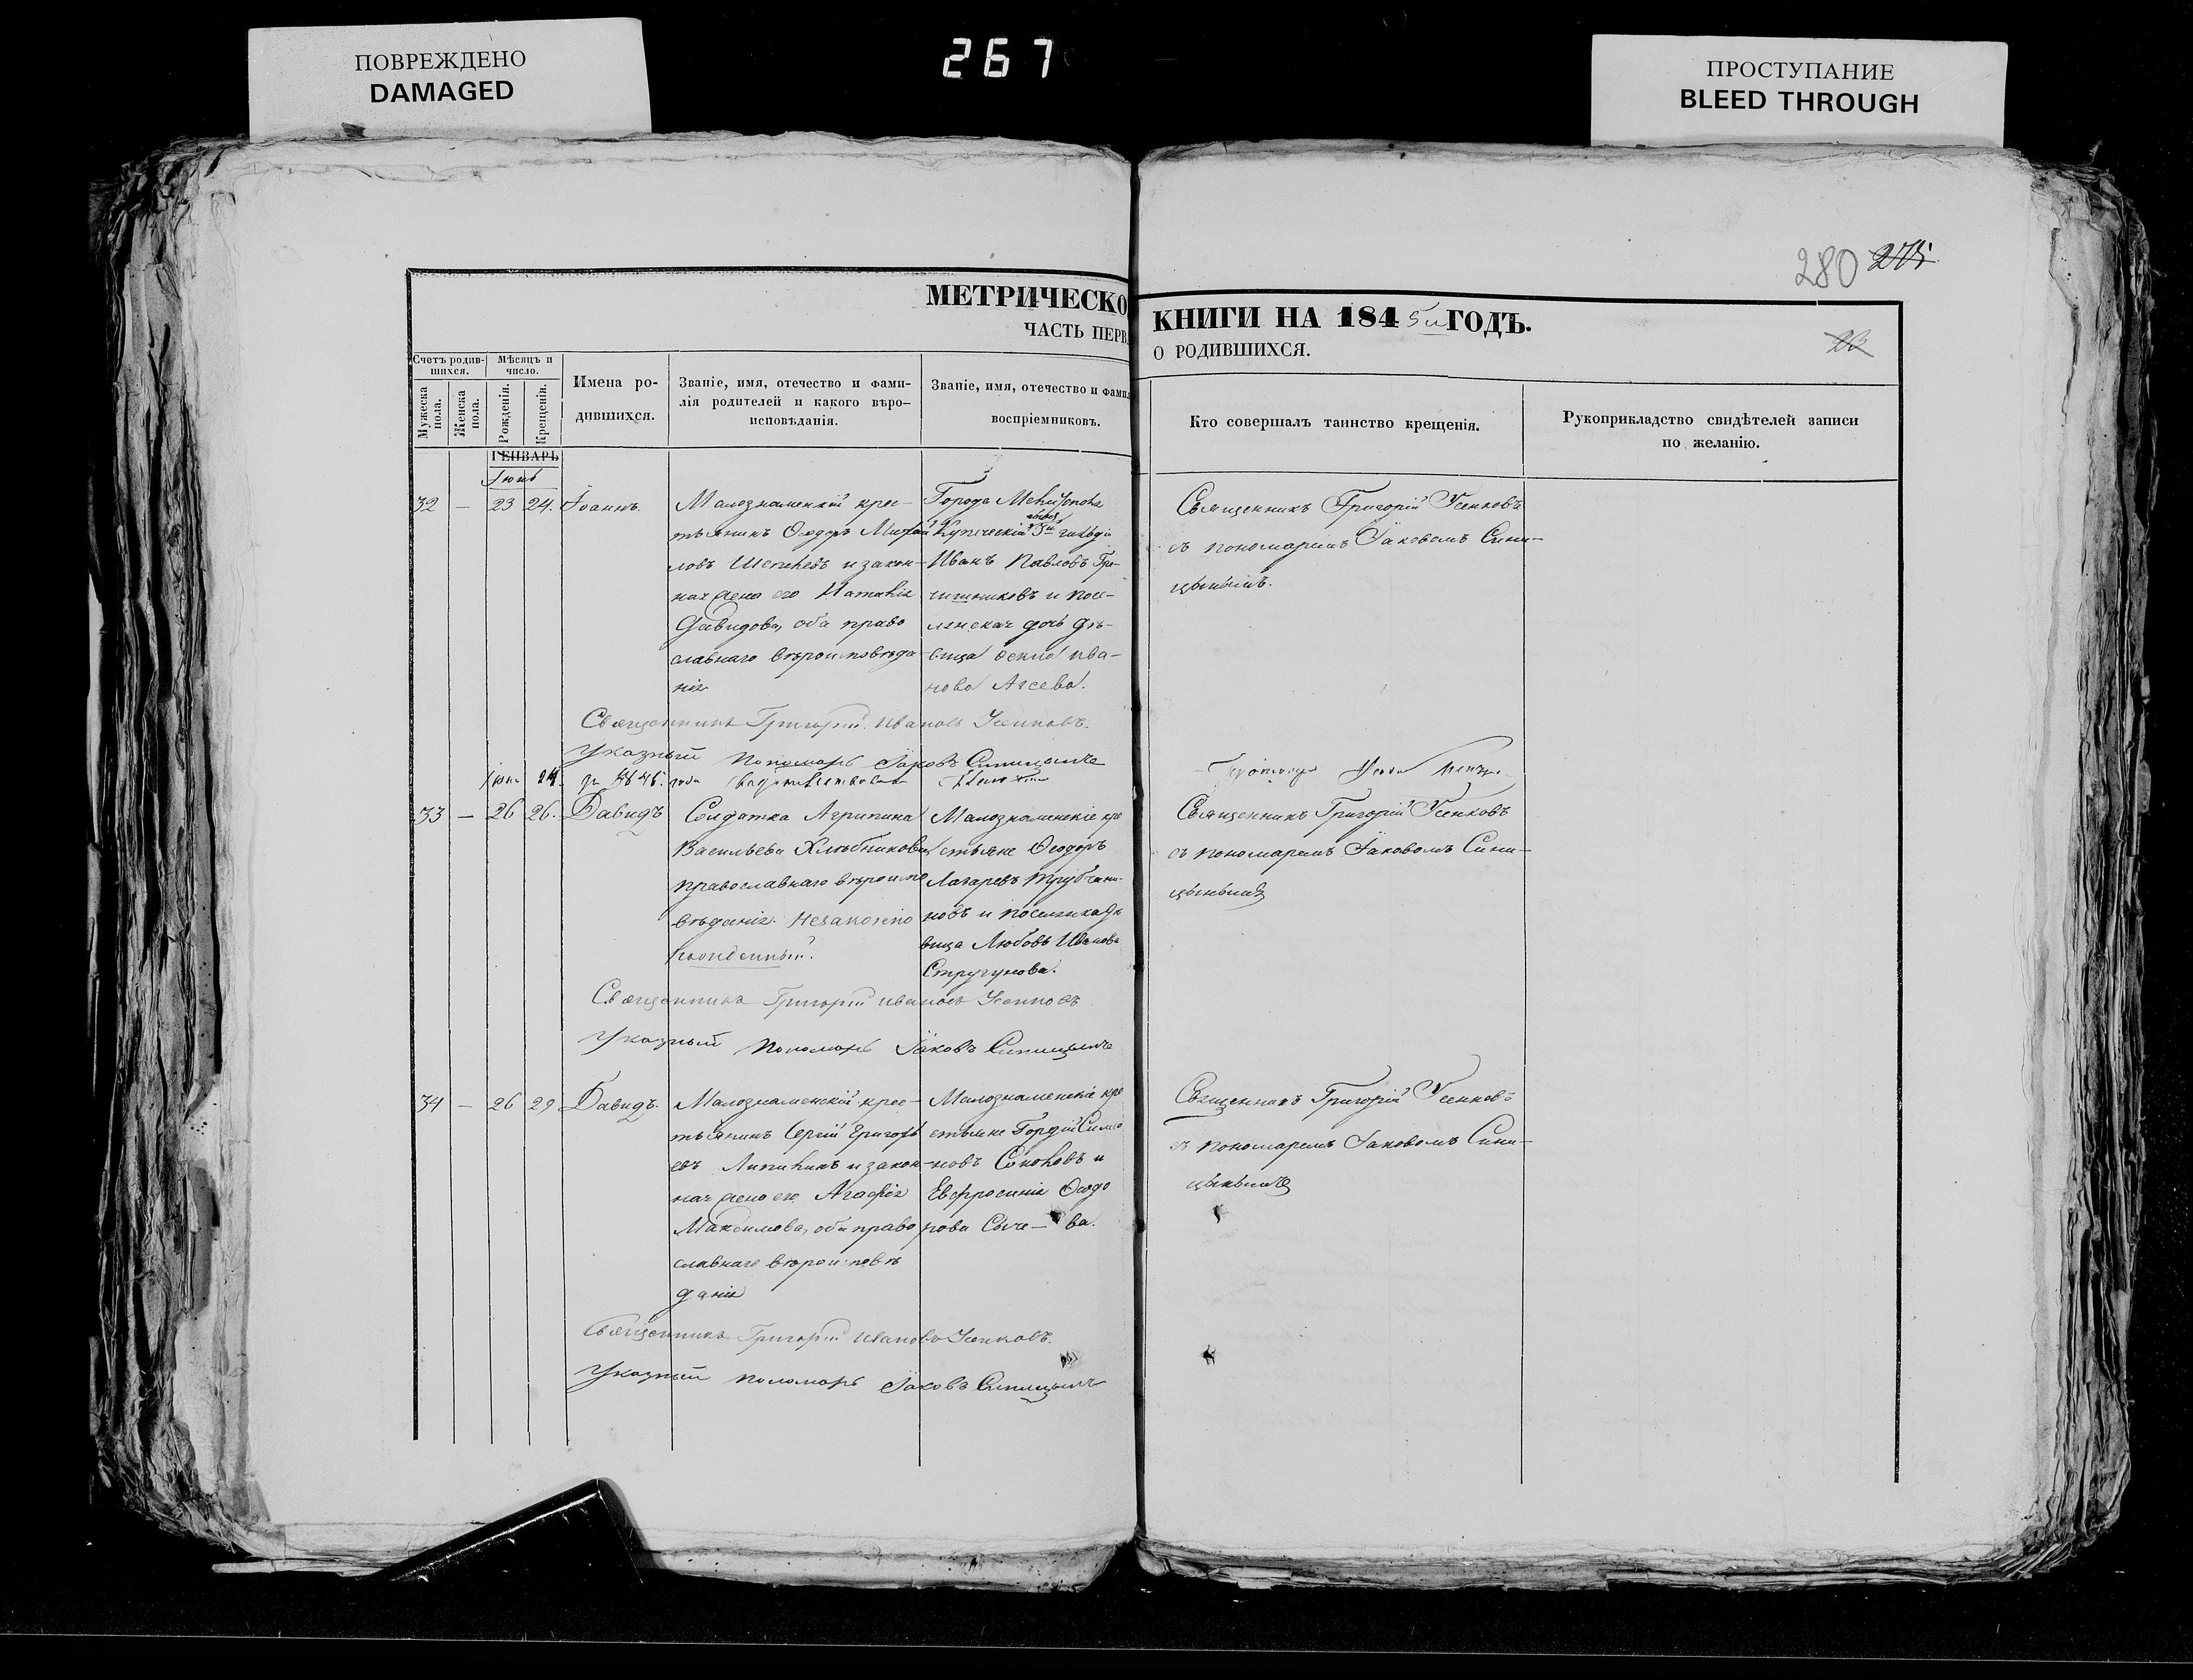 ПОВРЕЖДЕНО
DAMAGED
267
ПРОСТУПАНИЕ
BLEED THROUGH
280 275
23
МЕТРИЧЕСКО
КНИГИ НА 1845й ГОДЪ.
ЧАСТЬ ПЕРВ
О РОДИВШИХСЯ.
Счетъ родив-
шихся.
Мѣсяцъ и
число.
Мужеска
пола.
Женска
пола.
Рожденія.
Крещенія.
Имена ро-
дившихся.
Званіе, имя, отечество и фами-
лія родителей и какого вѣро-
исповѣданія.
Званіе, имя, отечество и фами
воспріемниковъ.
Кто совершалъ таинство крещенія.
Рукоприкладство свидѣтелей записи
по желанію.
ГЕНВАРЬ
Іюнь
32 — 23 24. Іоаннъ.
Малознаменскій крес-
тьянинъ Ѳеодоръ Михай
ловъ и закон-
ная жена его Наталія
Давидова, оба право
славнаго вѣроисповѣда
нія
Города
Купеческій 3й гильдіи
Иванъ Павловъ Гре-
чишниковъ и посе-
лянская дочь дѣ-
вица Ива-
нова
Священникъ Григорій Усенковъ
съ пономаремъ Іаковомъ Сини-
цынымъ.
Священникъ Григорій Ивановъ Усенковъ.
Указный пономарь Іаковъ Синицынъ
Іюнь 24. года
33 — 26 26. Давидъ
Солдатка Агрипина
Васильева Хлѣбникова
православнаго вѣроиспо
вѣданія. Незаконно
рожденный.
Малознаменскіе кре
стьяне Ѳеодоръ
Лазаревъ Трубчани-
новъ и поселянка дѣ
вица Любовь Иванова
Стругунова.
Священникъ Григорій Усенковъ
съ пономаремъ Іаковомъ Сини-
цынымъ
Священникъ Григорій Ивановъ Усенковъ
Указный пономарь Іаковъ Синицынъ
34 — 26 29 Давидъ.
Малознаменскій крес-
тьянинъ Сергій Григорь
евъ и закон-
ная жена его Агафія
Максимова, оба право
славнаго вѣроисповѣ
данія
Малознаменскіе кре
стьяне Гордій Симо
новъ и
Евфросинія Ѳеодо
рова Сыче-ва.
Священникъ Григорій Усенковъ
съ пономаремъ Іаковомъ Сини-
цынымъ
Священникъ Григорій Ивановъ Усенковъ.
Указный пономарь Іаковъ Синицынъ